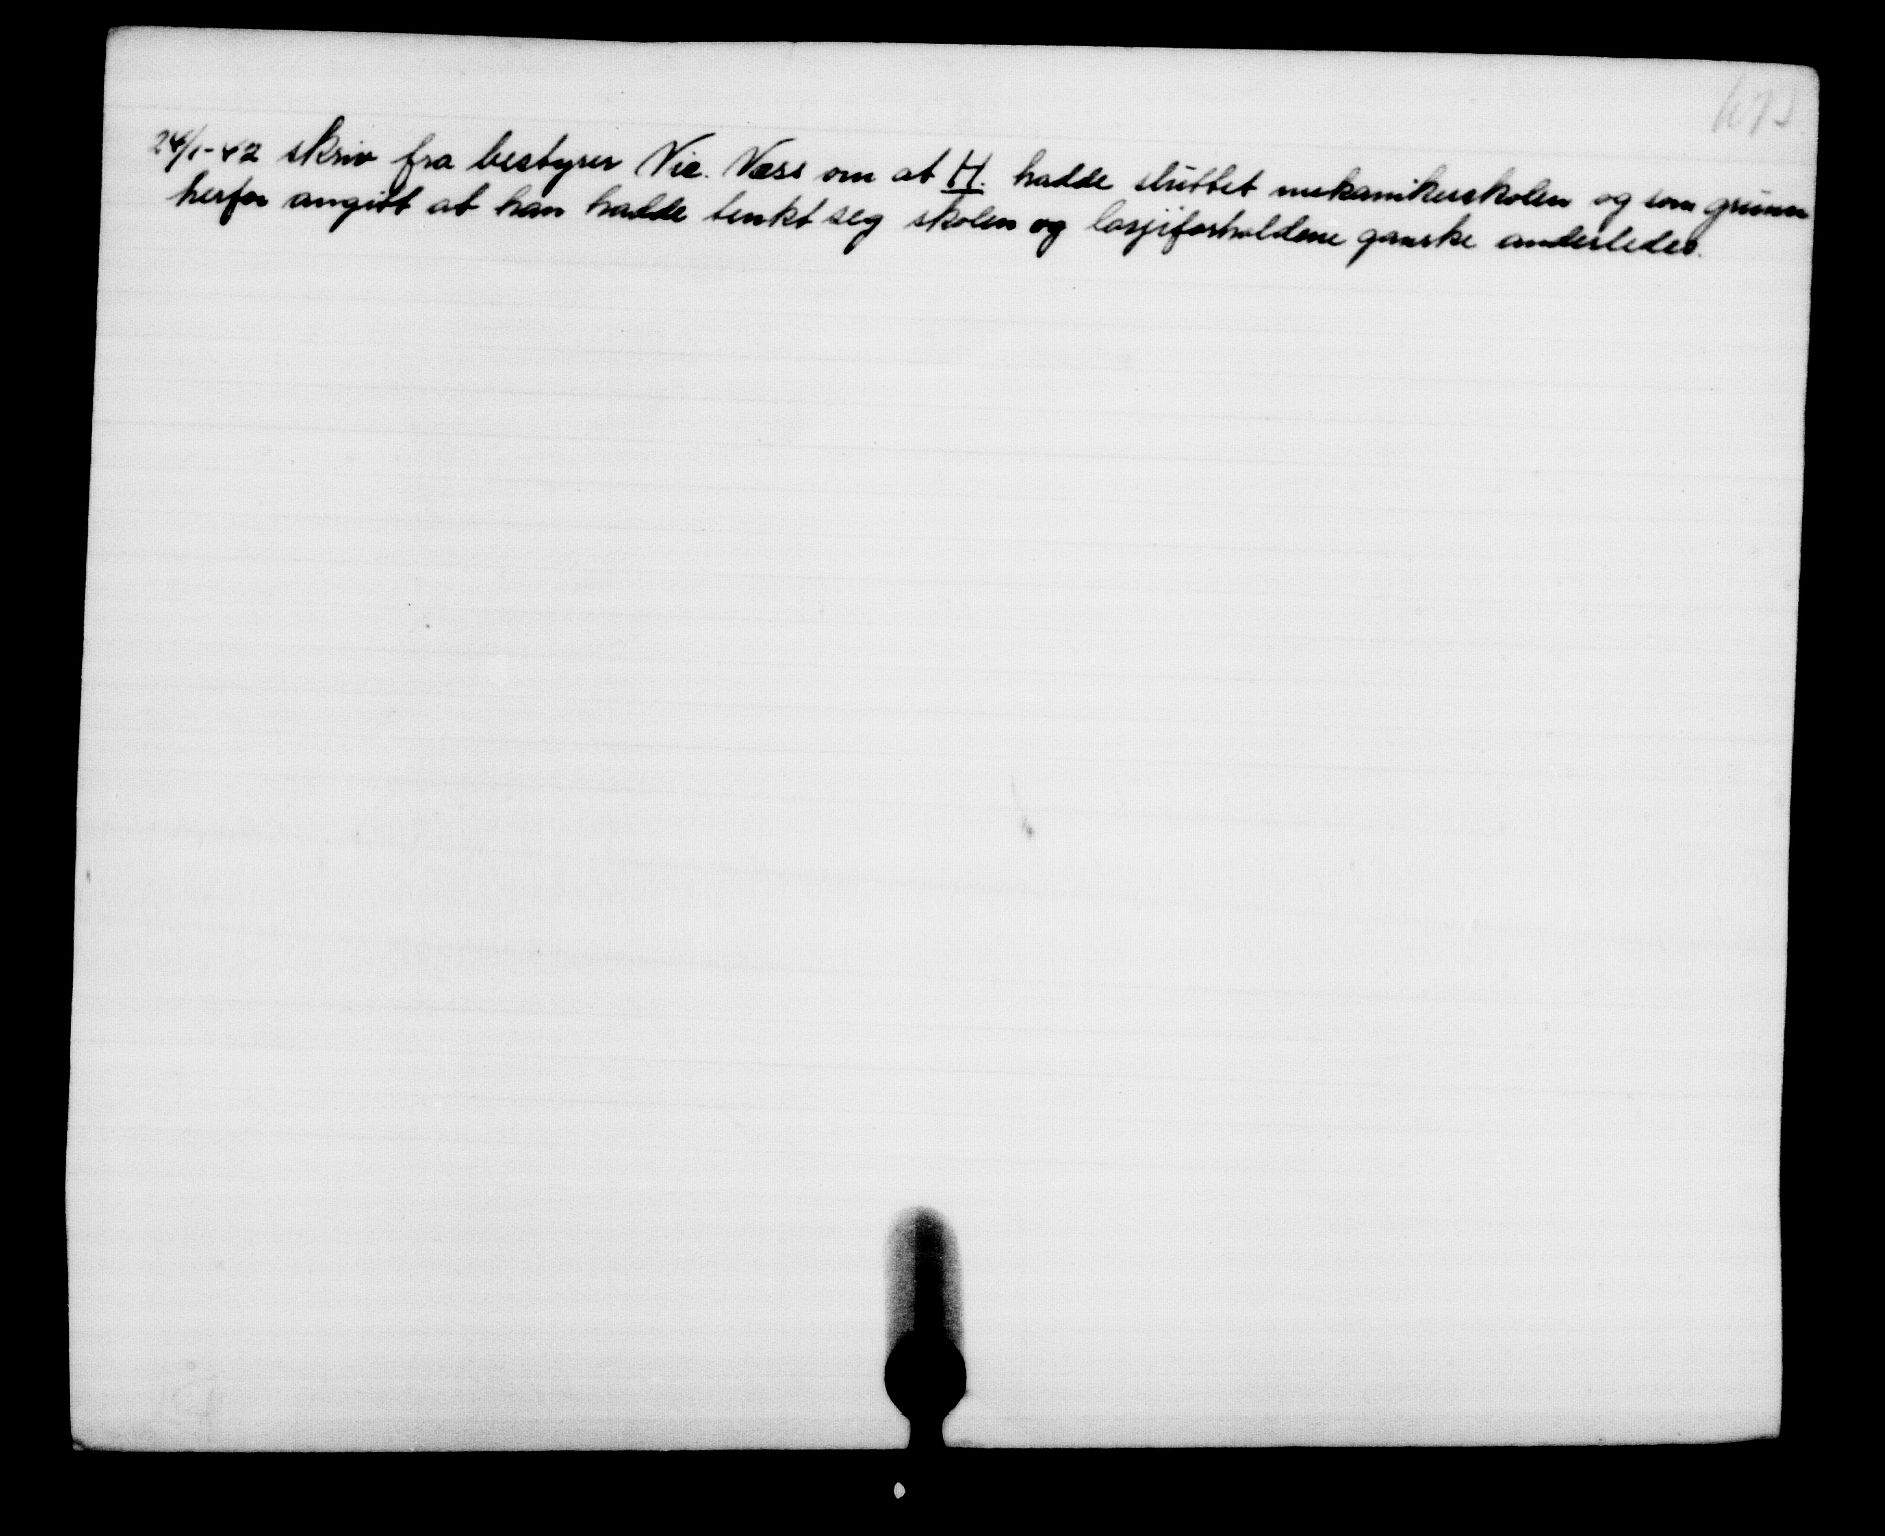 24/1-42 skriv fra bestyrer Nic. Næss om at H. hadde sluttet mekanikerskolen og som grunn
herfor angitt at han hadde tenkt seg skolen og losjiforholdene ganske anderledes.